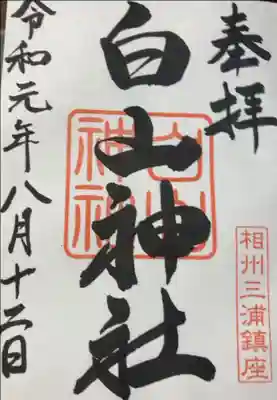 奉拝
相州三浦鎮座
白山神社
令和元年八月十二日